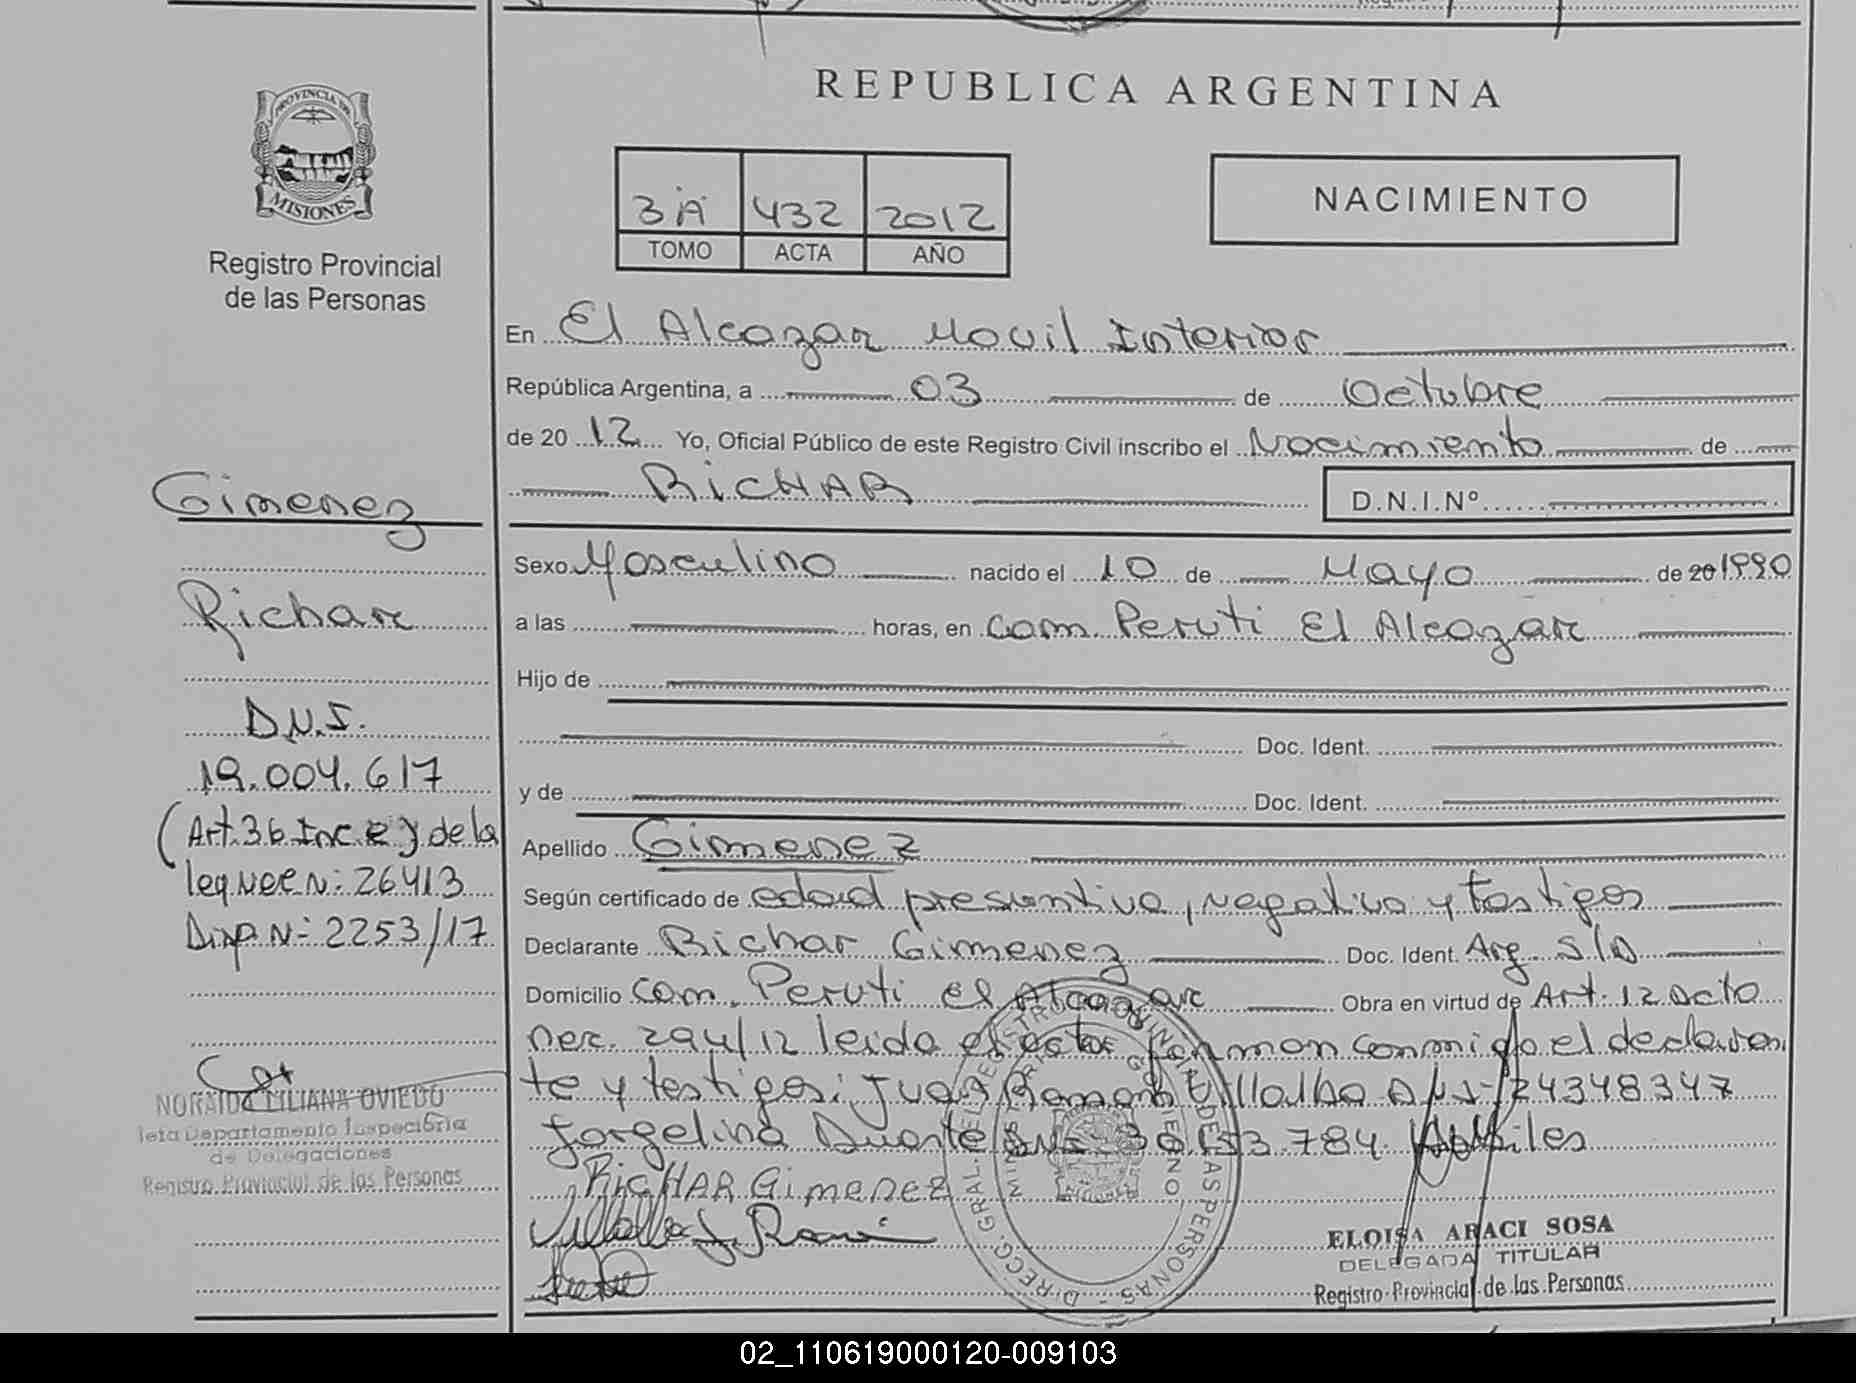 PROVINCIA DE
MISIONES
Registro Provincial
de las Personas
Gimenez
Richar
D.N.I.
19.004.617
(Art. 36 Inc. e) de la
ley Nac N: 26413
Disp N: 2253/17
NORAIDE LILIANA OVIEDO
Jefa Departamento Inspectoría
de Delegaciones
Registro Provincial de las Personas
REPUBLICA ARGENTINA
3A 432 2012
TOMO ACTA AÑO
NACIMIENTO
En El Alcazar Movil Interior
República Argentina, a 03 de Octubre
de 20 12 Yo, Oficial Público de este Registro Civil inscribo el Nacimiento de
RICHAR D.N.I.Nº
Sexo Masculino nacido el 10 de Mayo de 20 1990
a las horas, en Com. Peruti El Alcazar
Hijo de
Doc. Ident.
y de Doc. Ident.
Apellido Gimenez
Según certificado de edad presuntiva, negativa y testigos
Declarante Richar Gimenez Doc. Ident. Arg. S/D
Domicilio Com. Peruti El Alcazar Obra en virtud de Art. 12 Dcto
Nac. 294/12 leida el acta firman conmigo el declaran
te y testigos: Juan Ramon Villalba DNI 24348347
Jorgelina Duarte DNI 30153.784 Habiles
RicHAR Gimenez
Villalba J. Ramón
DIRECC. GRAL. DEL REGISTRO PROVINCIAL DE LAS PERSONAS
MINISTERIO GOBIERNO
ELOISA ARACI SOSA
DELEGADA TITULAR
Registro Provincial de las Personas
02_110619000120-009103